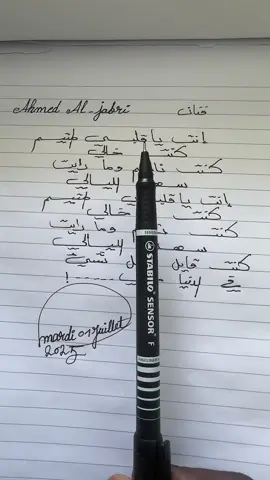 Ahmed Al-jabri فنان
إنت يا قلبي متيم
كنت خالي
كنت نايم وما رايت
سهر الليالي
إنت يا قلبي متيم
كنت خالي
كنت وما رايت
الليالي
كنت قايل كل شيء
في الدنيا !
STABILO SENSOR F
mardi 01 Juillet
2025